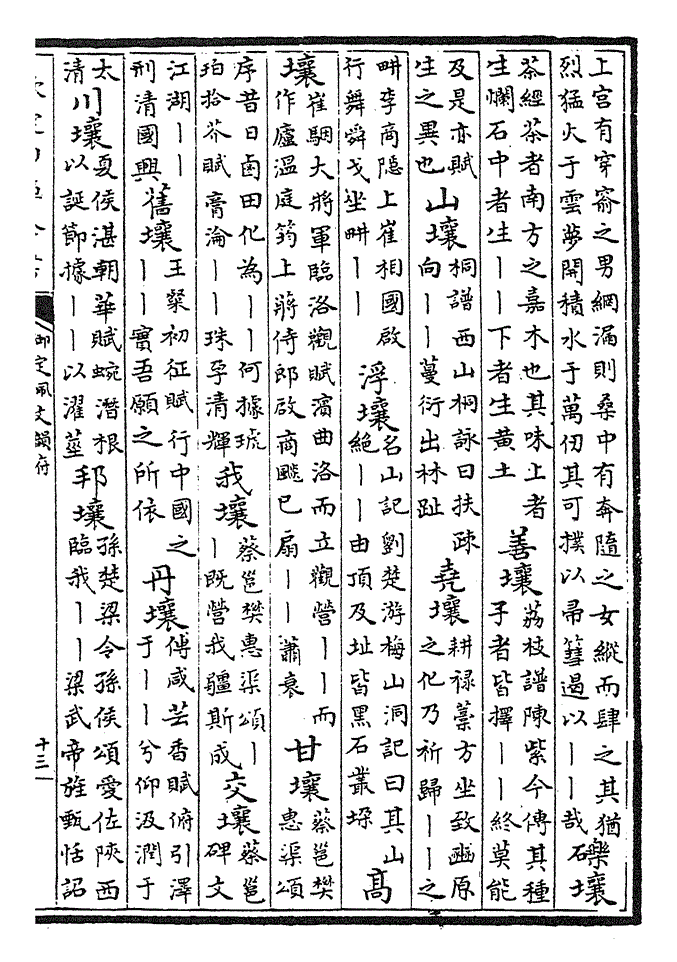 上宫有穿窬之男網漏則桑中有奔隨之女縱而肆之其猶
烈猛火于雲夢開積水于萬仞其可撲以帚篲遏以丨丨哉
礫壤
茶經茶者南方之嘉木也其味上者
生爛石中者生丨丨下者生黄土
善壤
荔枝譜陳紫今傳其種
子者皆擇丨丨終莫能
及是亦賦
生之異也
山壤
桐譜西山桐詠曰扶疎
向丨丨蔓衍出林趾
堯壤
耕禄藁方坐致豳原
之化乃祈歸丨丨之
畊李商隐上崔相國啟
行舞舜戈坐畊丨丨
浮壤
名山記劉楚游梅山洞記曰其山
絶丨丨由頂及址皆黑石叢垜
高
壤
崔駰大將軍臨洛觀賦濱曲洛而立觀營丨丨而
作廬温庭筠上蔣侍郎啟商飇已扇丨丨蕭衰
甘壤
蔡邕樊
惠渠頌
序昔日鹵田化為丨丨何據琥
珀拾芥賦膏淪丨丨珠孕清輝
我壤
蔡邕樊惠渠頌丨
丨既營我疆斯成
交壤
蔡邕
碑文
江湖丨丨
刑清國興
舊壤
王粲初征賦行中國之
丨丨實吾願之所依
丹壤
傅咸芸香賦俯引澤
于丨丨兮仰汲潤于
太
清
川壤
夏侯湛朝華賦蜿潛根
以誕節據丨丨以濯莖
邦壤
孫楚梁令孫侯頌愛佐陝西
臨我丨丨梁武帝旌甄恬詔
御定佩文韻府
十三